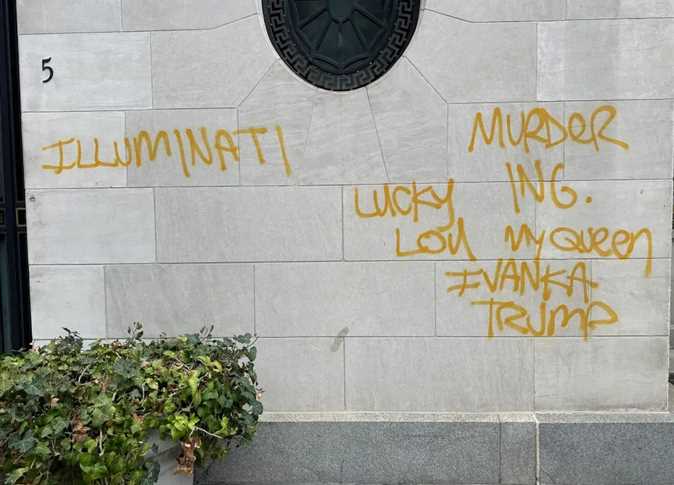 5
ILLUMINATI
MURDER
ING.
LUCKY
LOU MY QUEEN
IVANKA
TRUMP